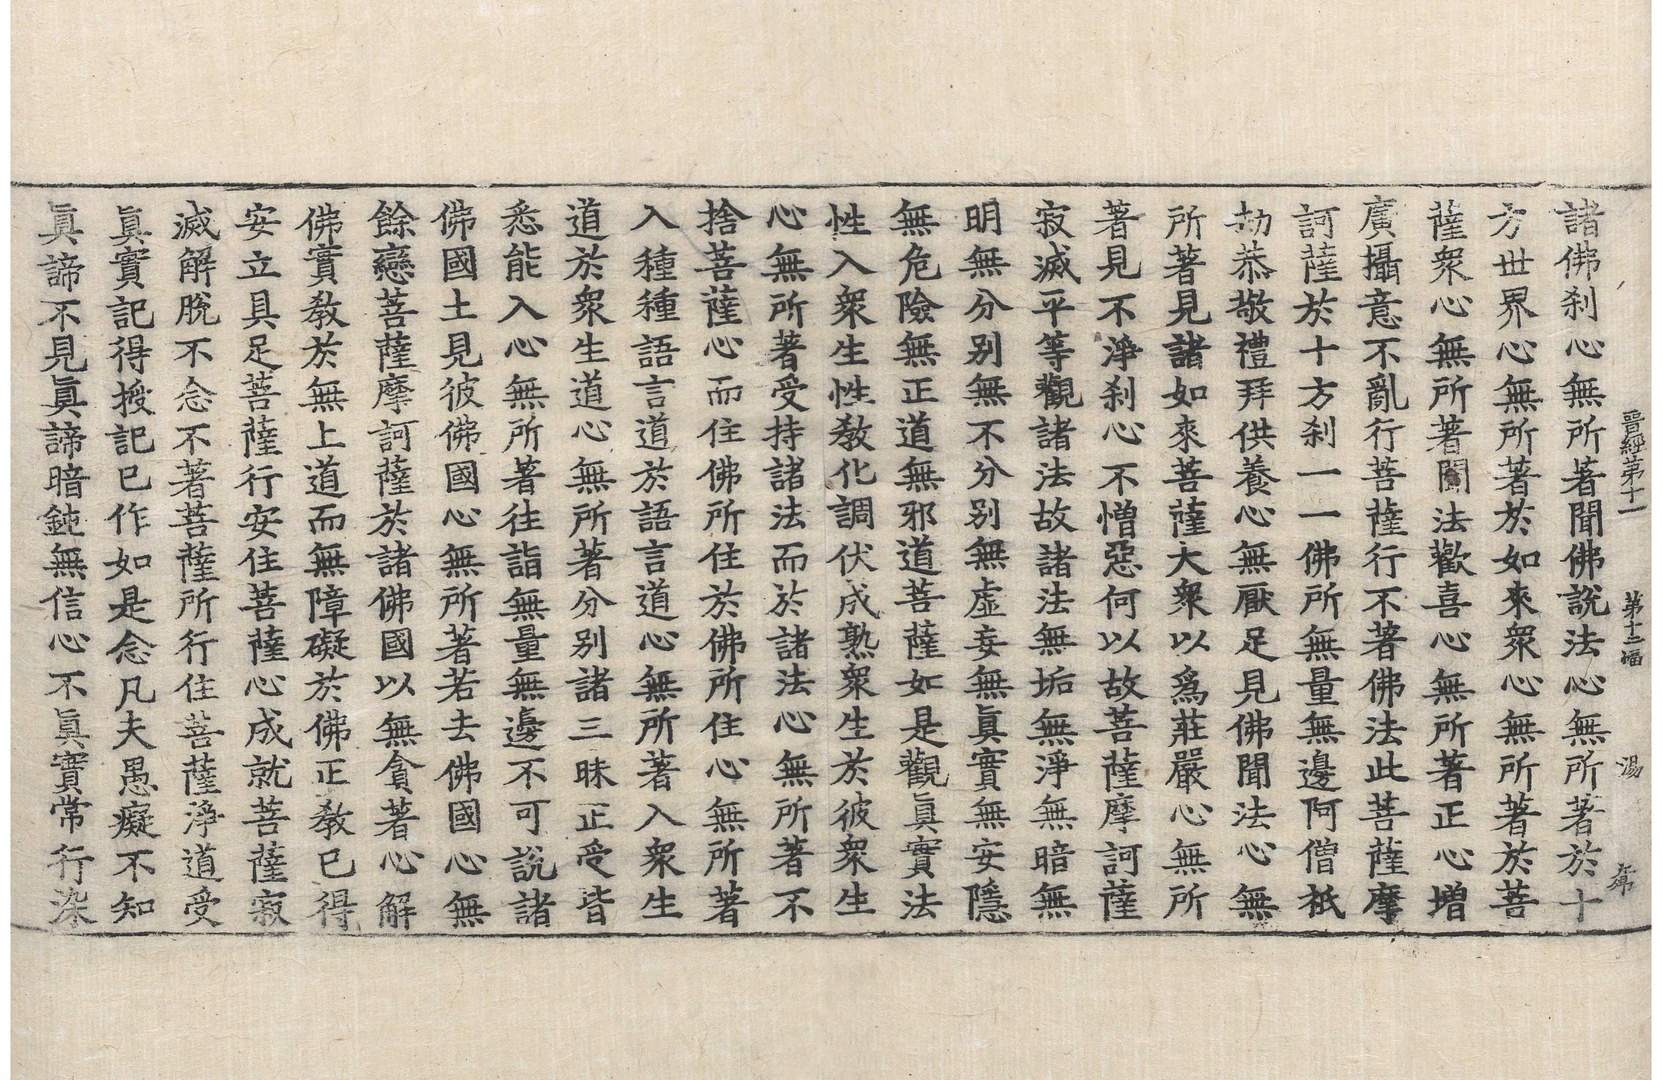 晋經第十一　第十二幅　湯
諸佛刹心無所著聞佛說法心無所著於十
方世界心無所著於如來衆心無所著於菩
薩衆心無所著聞法歡喜心無所著正心增
廣攝意不亂行菩薩行不著佛法此菩薩摩
訶薩於十方刹一一佛所無量無邊阿僧祇
劫恭敬禮拜供養心無厭足見佛聞法心無
所著見諸如來菩薩大衆以爲莊嚴心無所
著見不淨刹心不憎惡何以故菩薩摩訶薩
寂滅平等觀諸法故諸法無垢無淨無暗無
明無分别無不分别無虛妄無眞實無安隱
無危險無正道無邪道菩薩如是觀眞實法
性入衆生性教化調伏成熟衆生於彼衆生
心無所著受持諸法而於諸法心無所著不
捨菩薩心而住佛所住於佛所住心無所著
入種種語言道於語言道心無所著入衆生
道於衆生道心無所著分别諸三昧正受皆
悉能入心無所著往詣無量無邊不可說諸
佛國土見彼佛國心無所著若去佛國心無
餘戀菩薩摩訶薩於諸佛國以無貪著心解
佛實教於無上道而無障礙於佛正教已得
安立具足菩薩行安住菩薩心成就菩薩寂
滅解脫不念不著菩薩所行住菩薩淨道受
眞實記得授記已作如是念凡夫愚癡不知
眞諦不見眞諦暗鈍無信心不眞實常行染